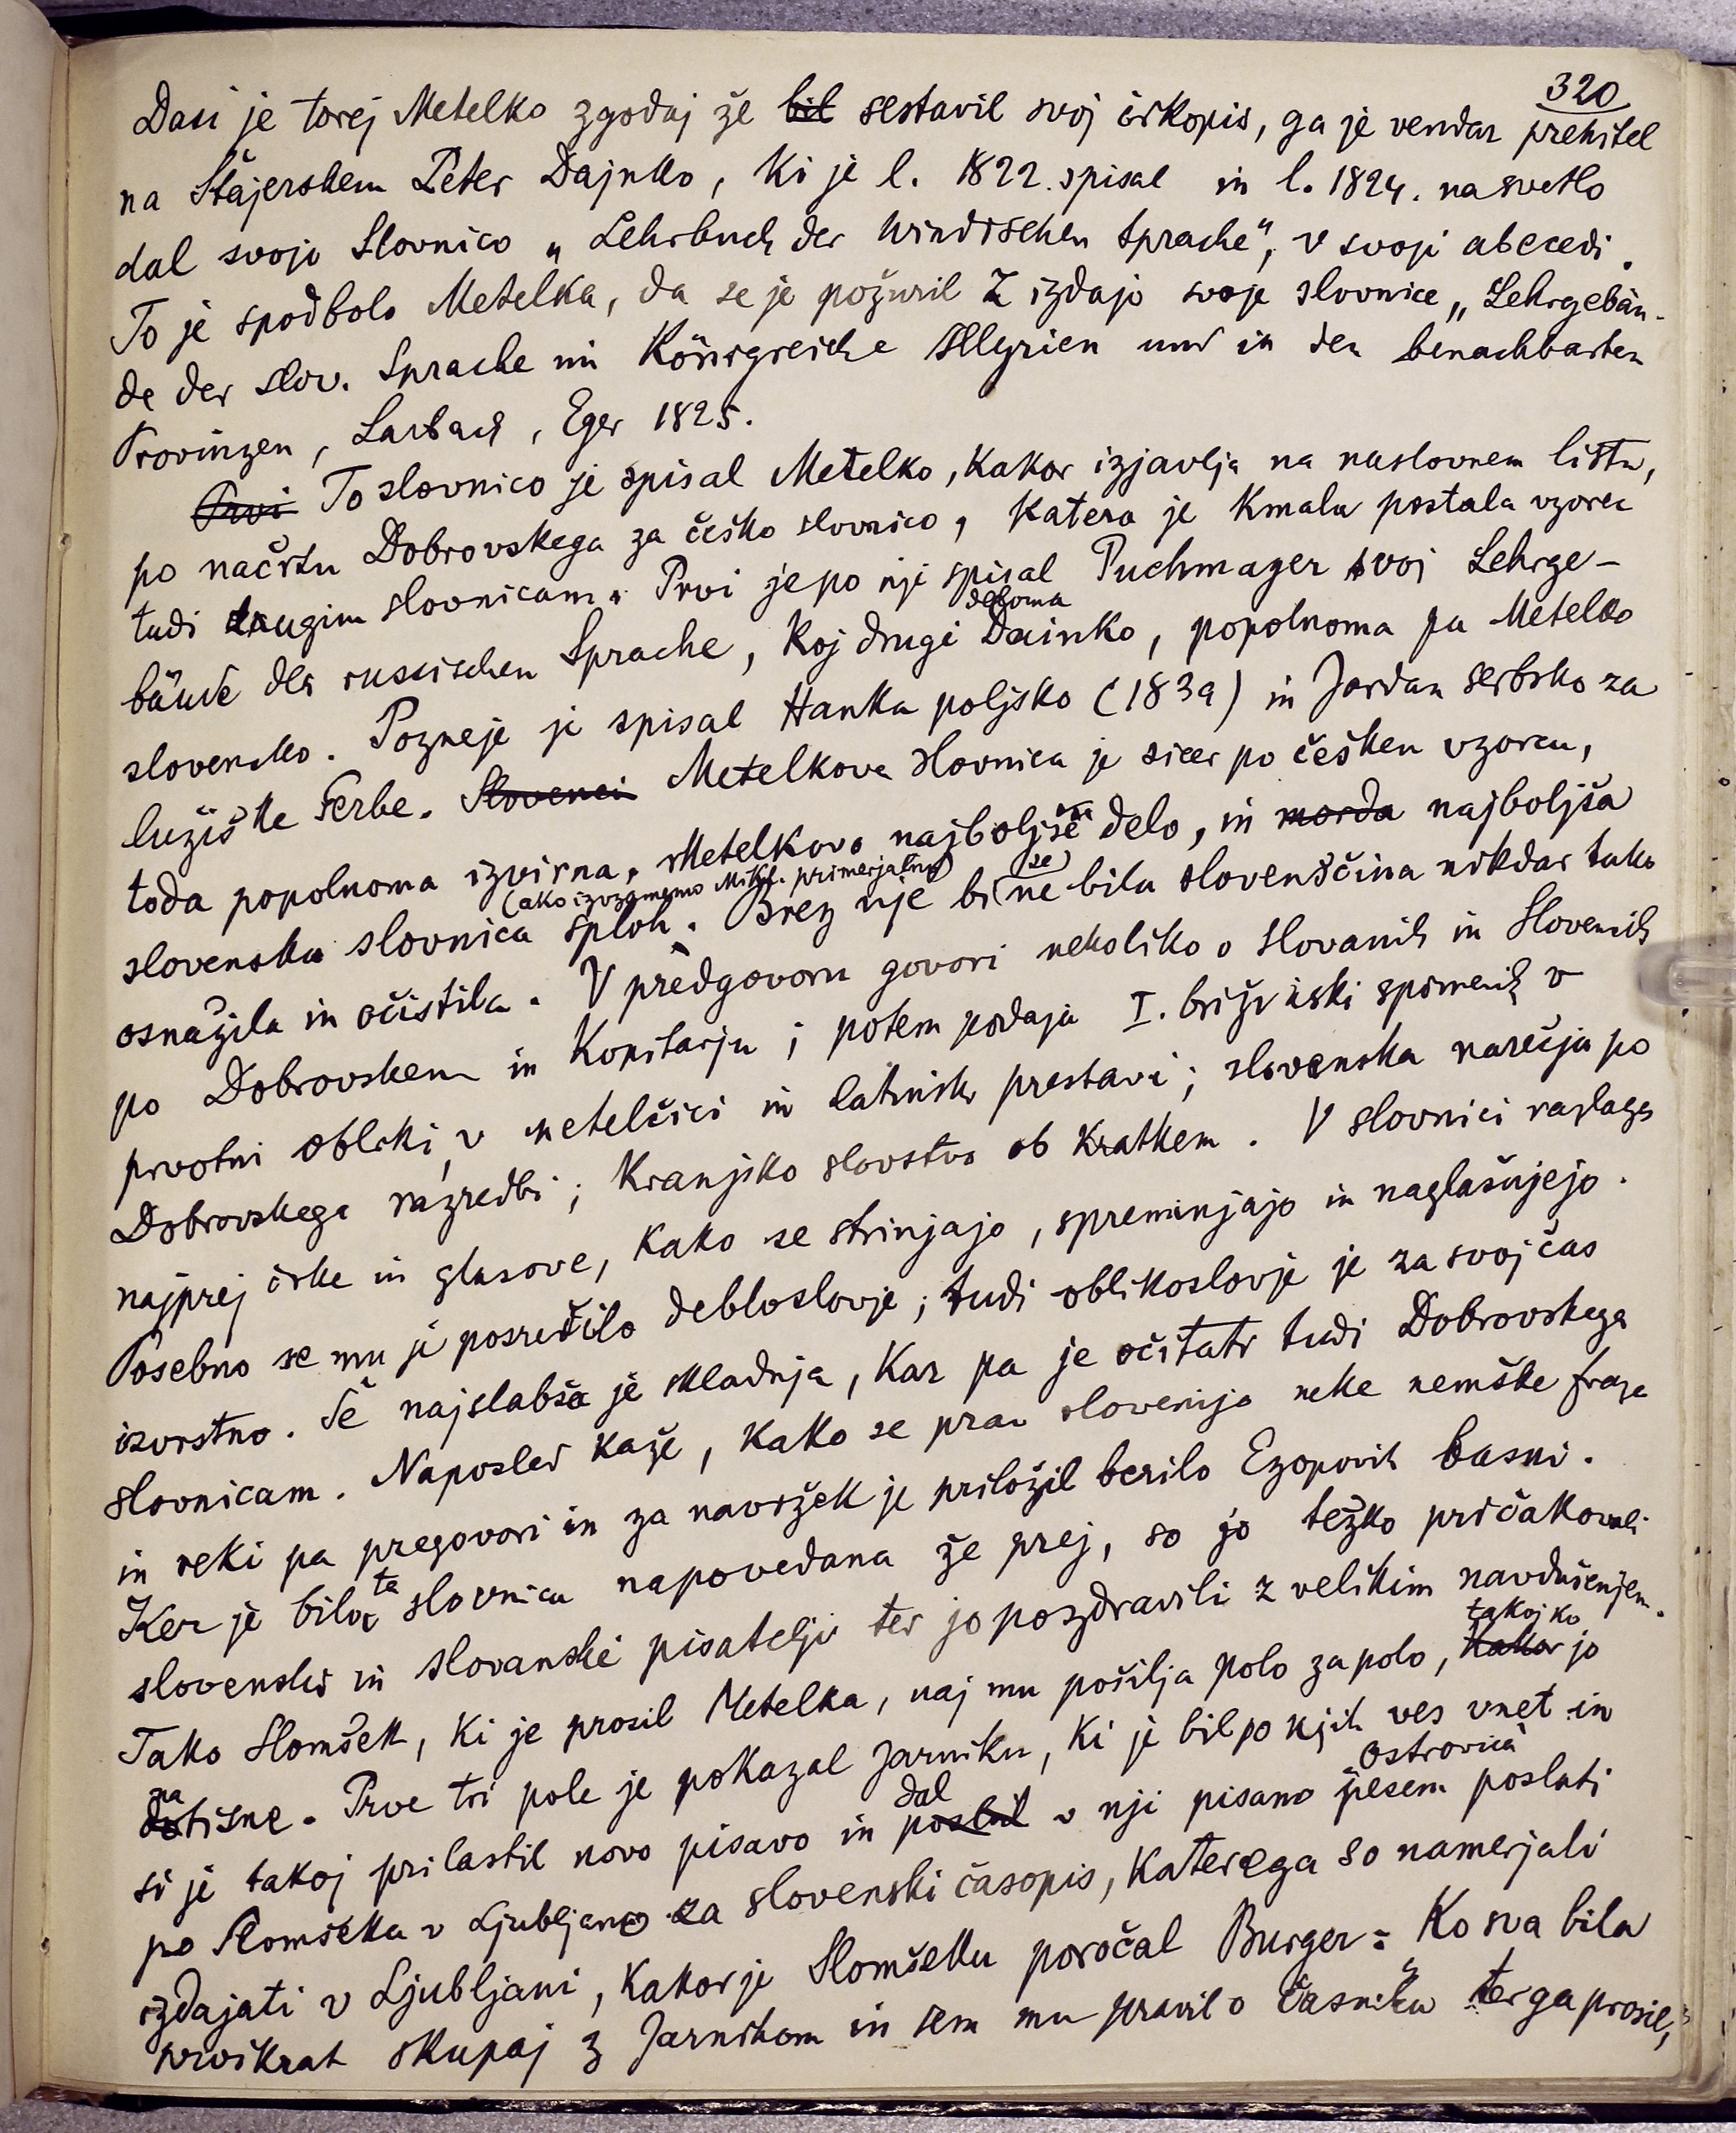 320
Dasi je torej Metelko zgodaj že bil sestavil svoj črkopis, ga je vendar prehitel
na Štajerskem Peter Dajnko, ki je l. 1822. spisal in l. 1824. na svetlo
dal svojo slovnico „Lehrbuch der windischen Sprache“, v svoji abecedi.
To je spodbolo Metelka, da se je požuril z izdajo svoje slovnice „Lehrgebäu-
de der slov. Sprache im Königreiche Illyrien und in den benachbarten
Provinzen, Laibach, Eger 1825.
Prvi To slovnico je spisal Metelko, kakor izjavlja na naslovnem listu,
po načrtu Dobrovskega za češko slovnico, katera je kmalu postala vzorec
tudi drugim slovnicam. Prvi je po nji spisal Puchmayer svoj Lehrge-
bäude der russischen Sprache, koj drugi deloma Dainko, popolnoma pa Metelko
slovensko. Pozneje je spisal Hanka poljsko (1839) in Jordan serbsko za
lužiške Serbe. Slovenci Metelkova slovnica je sicer po češkem vzorcu,
toda popolnoma izvirna, Metelkovo najboljše delo, in morda najboljša
slovenska slovnica sploh (ako izvzamemo Mikl. primerjalno). Brez nje bi se ne bila slovenščina nikdar tako
osnažila in očistila. V predgovoru govori nekoliko o Slovanih in Slovencih
po Dobrovskem in Kopitarju; potem podaja I. brižinski spomenik v
prvotni obliki, v metelčici in latinski prestavi; slovenska narečja po
Dobrovskega razredbi; kranjsko slovstvo ob kratkem. V slovnici razlaga
najprej črke in glasove, kako se strinjajo, spreminjajo in naglašujejo.
Posebno se mu je posrečilo debloslovje; tudi oblikoslovje je za svoj čas
izvrstno. Še najslabša je skladnja, kar pa je očitati tudi Dobrovskega
slovnicam. Naposled kaže, kako se prav slovenijo neke nemške fraze
in reki pa pregovori in za navržek je priložil berilo Ezopovih basni.
Ker je bila ta slovnica napovedana že prej, so jo težko pričakovali
slovenski in slovanski pisatelji ter jo pozdravili z velikim navdušenjem.
Tako Slomšek, ki je prosil Metelka, naj mu pošilja polo za polo, kakor takoj ko jo
natisne. Prve tri pole je pokazal Jarniku, ki je bil po njih ves vnet in
si je takoj prilastil novo pisavo in poslal dal v nji pisano pesem Ostrovica poslati
po Slomšeka v Ljubljano za slovenski časopis, katerega so namerjali
izdajati v Ljubljani, kakor je Slomšeku poročal Burger: „Ko sva bila
prvikrat skupaj z Jarnikom in sem mu pravil o časniku ter ga prosil,